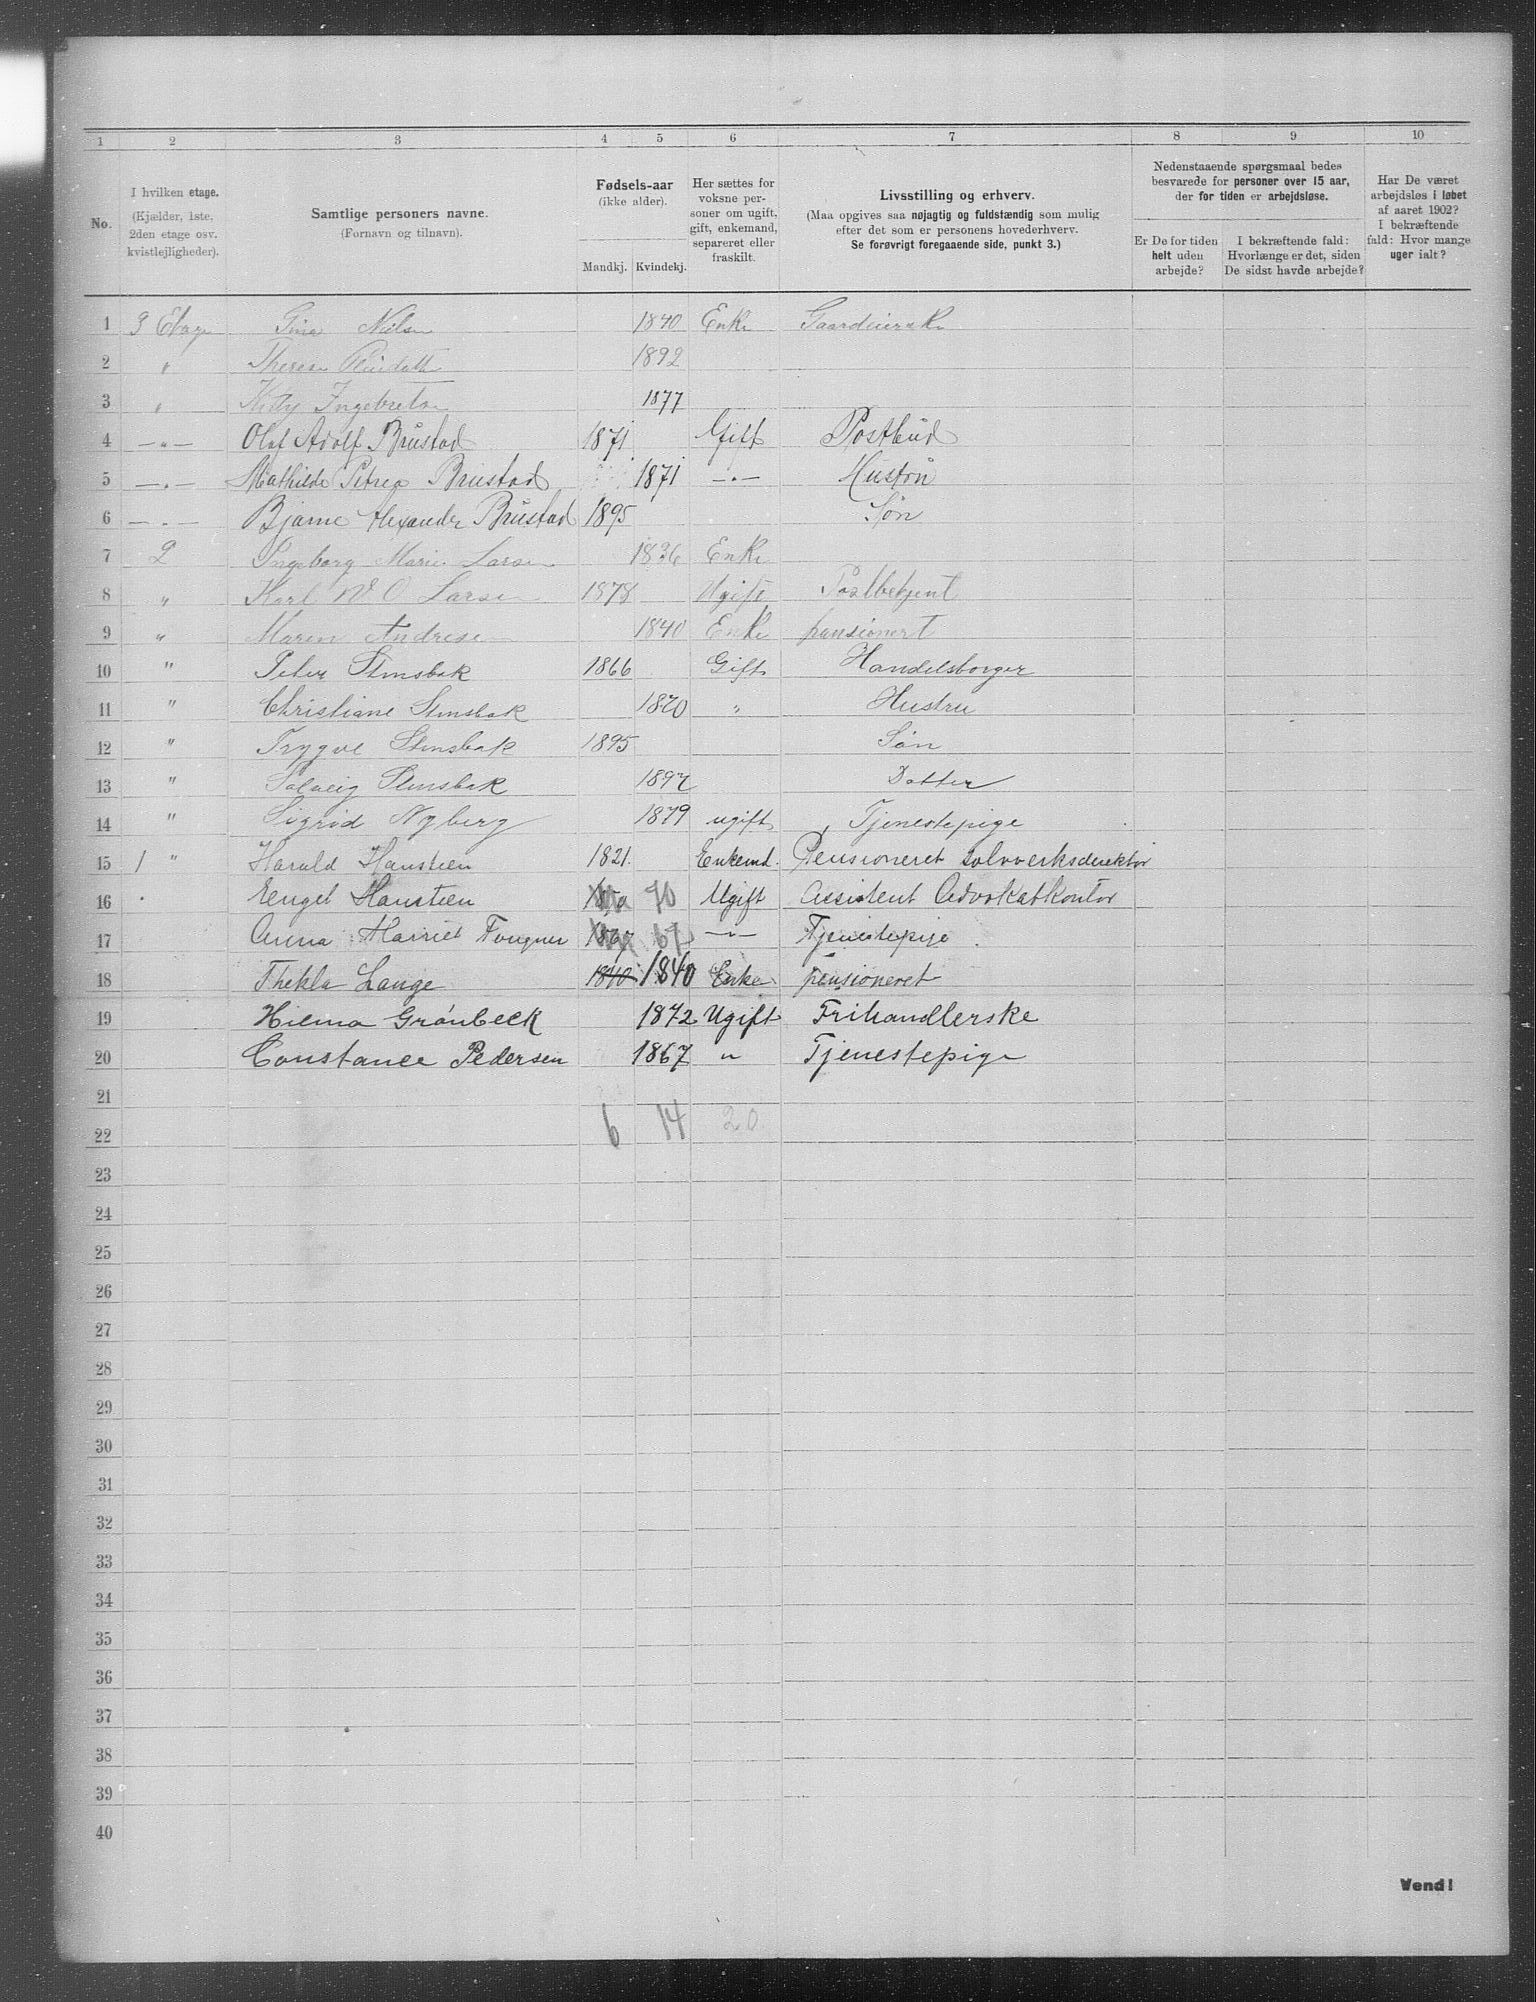 1 2 3 4 5 6 7 8 9 10
No.
I hvilken etage.
(Kjælder, 1ste,
2den etage osv.
kvistlejligheder).
Samtlige personers navne.
(Fornavn og tilnavn).
Fødsels-aar
(ikke alder).
Mandkj. Kvindekj.
Her sættes for
voksne per-
soner om ugift,
gift, enkemand,
separeret eller
fraskilt.
Livsstilling og erhverv.
(Maa opgives saa nøjagtig og fuldstændig som mulig
efter det som er personens hovederhverv.
Se forøvrigt foregaaende side, punkt 3.)
Nedenstaaende spørgsmaal bedes
besvarede for personer over 15 aar,
der for tiden er arbejdsløse.
Er De for tiden
helt uden
arbejde?
I bekræftende fald:
Hvorlænge er det, siden
De sidst havde arbejde?
Har De været
arbejdsløs i løbet
af aaret 1902?
I bekræftende
fald: Hvor mange
uger ialt?
1 3 Etage Tina Nielsen 1840 Enke
2 " Therese 1892
3 " Kitty Ingebretsen 1877
4 —"— Olaf Adolf Brustad 1871 Gift Postbud
5 —"— Mathilde Petrea Brustad 1871 —"— Hustru
6 —"— Bjarne Alexander Brustad 1895 Søn
7 2 Ingeborg Marie Larsen 1836 Enke
8 " Karl W. O. Larsen 1878 Ugift Postbetjent
9 " Maren Andresen 1840 Enke pensionert
10 " Peter Stensbak 1866 Gift Handelsborger
11 " Christiane Stensbak 1870 " Hustru
12 " Trygve Stensbak 1895 Søn
13 " Solveig Stensbak 1897 Datter
14 " Sigrid Nyberg 1879 ugift Tjenestepige
15 1 " Harald Hansteen 1821. Enkemd. Pensioneret Sølvverksdirektør
16 " Hansteen 70 Ugift Assistent Advokatkontor
17 Anna Harriet Fougner 67 —"— Tjenestepige
18 Thekla Lange 1840 1840 Enke pensioneret
19 Hilma Grønbeck 1872 Ugift Frihandlerske
20 Constance Pedersen 1867 " Tjenestepige
21
22 6 14 20
23
24
25
26
27
28
29
30
31
32
33
34
35
36
37
38
39
40
Vend!